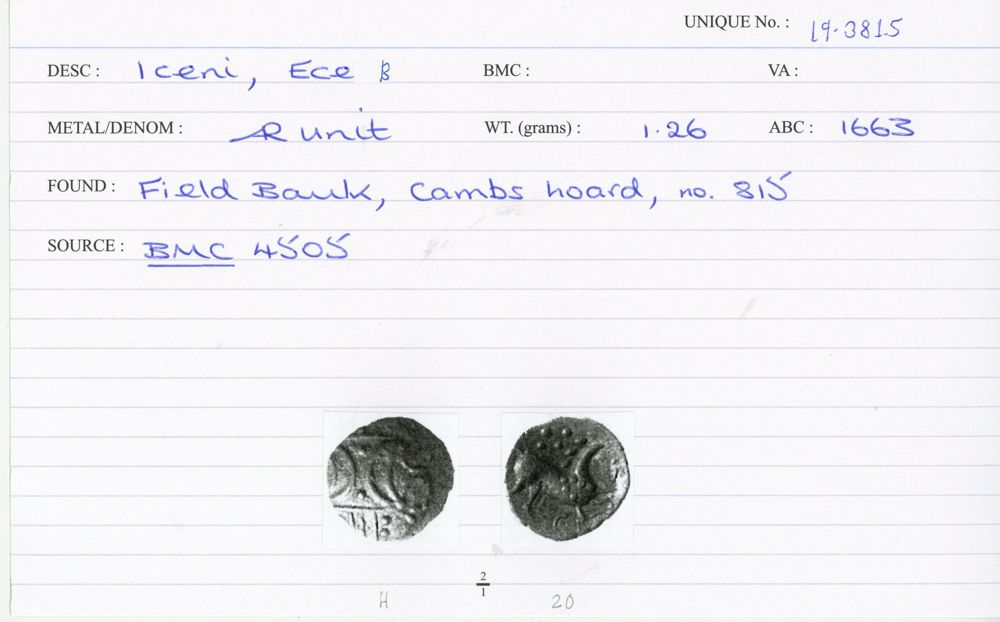 UNIQUE No. : 19.3815
DESC : Iceni, Ece B BMC : VA :
METAL/DENOM : AR unit WT. (grams) : 1.26 ABC : 1663
FOUND : Field Baulk, Cambs hoard, no. 815
SOURCE : BMC 4505
2
1
H 20